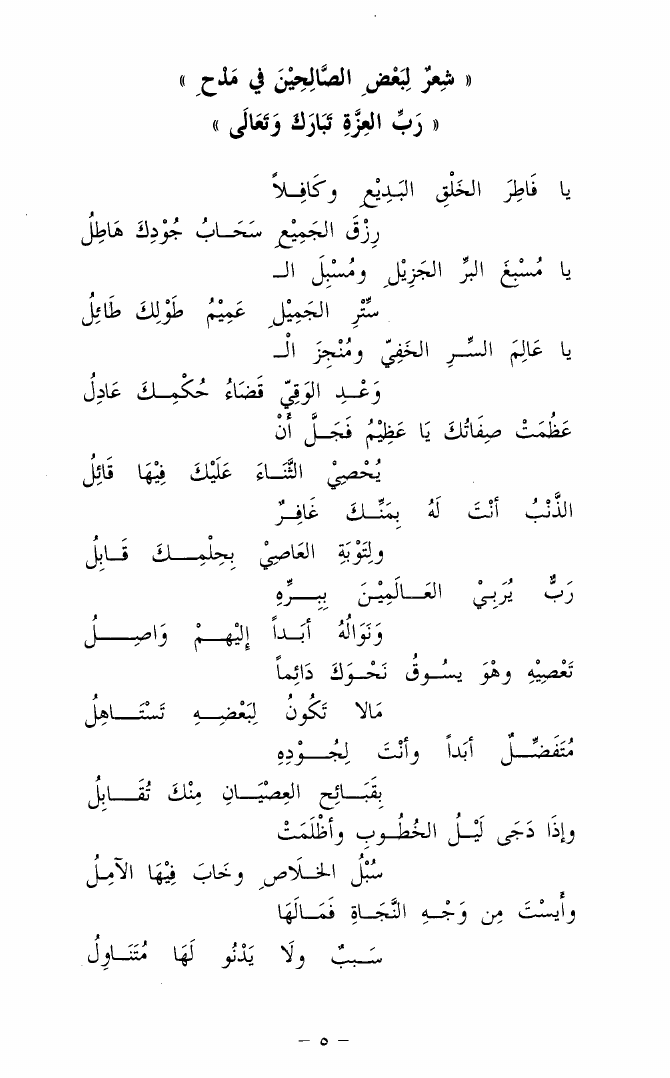 « شِعرٌ لِبَعْضِ الصَّالِحِيْنَ في مَدْحِ »
« رَبِّ العِزَّةِ تَبَارَكَ وَتَعَالَى »
يا فَاطِرَ الخَلْقِ البَدِيْعِ وكَافِلاً
رِزْقَ الجَمِيْعِ سَحَابُ جُوْدِكَ هَاطِلُ
يا مُسْبِغَ البرِّ الجَزِيْلِ ومُسْبِلَ الـ
سِّتْرِ الجَمِيْلِ عَمِيْمُ طَوْلِكَ طَائِلُ
يا عَالِمَ السِّرِ الخَفِيّ ومُنْجِزَ الْـ
وَعْدِ الوَفِيّ قَضَاءُ حُكْمِكَ عَادِلُ
عَظُمَتْ صِفَاتُكَ يَا عَظِيْمُ فَجَلَّ أَنْ
يُحْصِيْ الثَّنَاءَ عَلَيْكَ فِيْهَا قَائِلُ
الذَّنْبُ أَنْتَ لَهُ بِمَنِّكَ غَافِرٌ
ولِتَوْبَةِ العَاصِيْ بِحِلْمِكَ قَابِلُ
رَبٌّ يُرَبِيْ العَالَمِيْنَ بِبِرِّهِ
وَنَوَالُهُ أَبَداً إِلَيْهِمْ وَاصِلُ
تَعْصِيْهِ وهْوَ يسُوقُ نَحْوَكَ دَائِماً
مَالا تَكُونُ لِبَعْضِهِ تَسْتَاهِلُ
مُتَفَضِّلٌ أَبَداً وأَنْتَ لِجُوْدِهِ
بِقَبَائِحِ العِصْيَانِ مِنْكَ تُقَابِلُ
وإِذَا دَجَى لَيْلُ الخُطُوبِ وأَظْلَمَتْ
سُبْلُ الخَلاصِ وخَابَ فِيْهَا الآمِلُ
وأَيِسْتَ مِن وَجْهِ النَّجَاةِ فَمَالَهَا
سَبَبٌ ولَا يَدْنُو لَهَا مُتَنَاوِلُ
— ٥ —